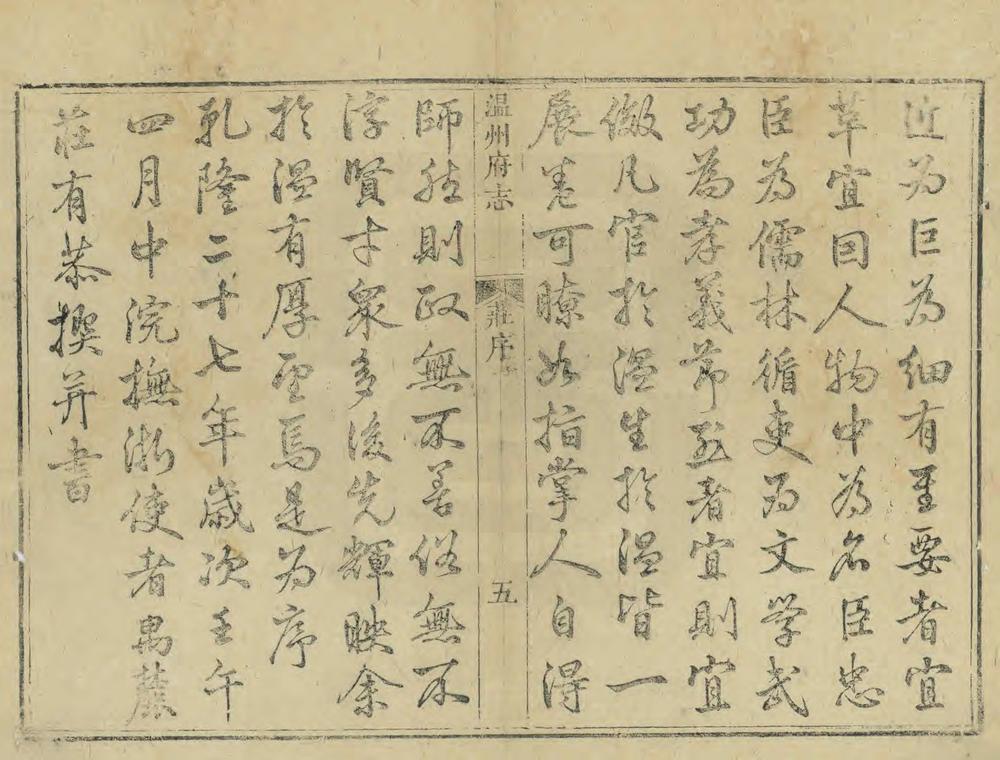 近为巨為細有至要者宜
革宜因人物中為名臣忠
臣為儒林循吏為文學武
功為孝義節烈者宜則宜
倣凡官於溫生於溫皆一
展卷可瞭如指掌人自得
温州府志
莊序
五
師然則政無不善俗無不
淳賢才眾多後先輝映余
於溫有厚望焉是为序
乾隆二十七年歲次壬午
四月中浣撫浙使者禺麓
莊有恭撰并書